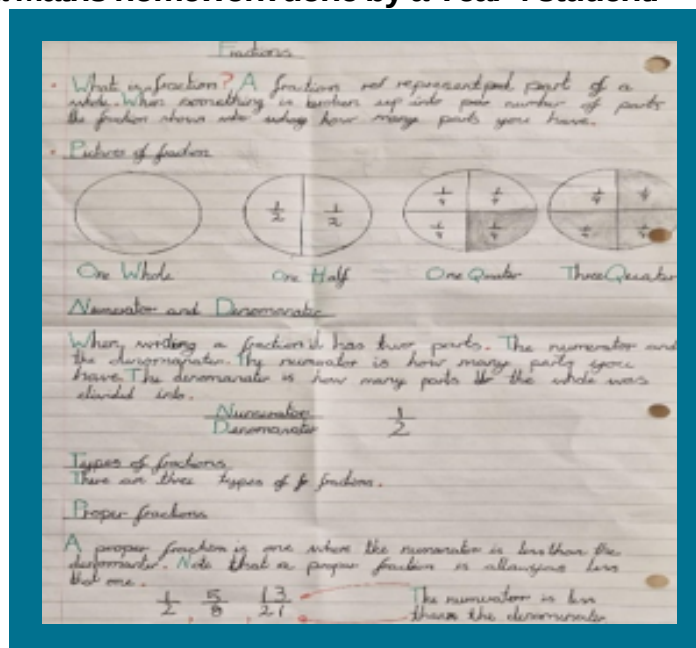 maths homework done by a Year 4 student
Fractions
What is fraction? A fraction represent part of a
whole. When something is broken up into number of parts
the fraction shows how many parts you have.
Pictures of fraction
1/2 1/2 1/4 1/4 1/4 1/4 1/4 1/4 1/4 1/4
One Whole One Half One Quater Three Quater
Numerator and Denomanator
When writing a fraction it has two parts. The numerator and
the denomanator. The numerator is how many parts you
have. The denomanator is how many parts the whole was
divided into.
Numerator 1/2
Denomanator
Types of fractions
There are three types of fractions.
Proper fractions
A proper fraction is one where the numerator is less than the
denomanator. Note that a proper fraction is less
that one.
1/2, 5/8, 13/21 The numerator is less
than the denominator